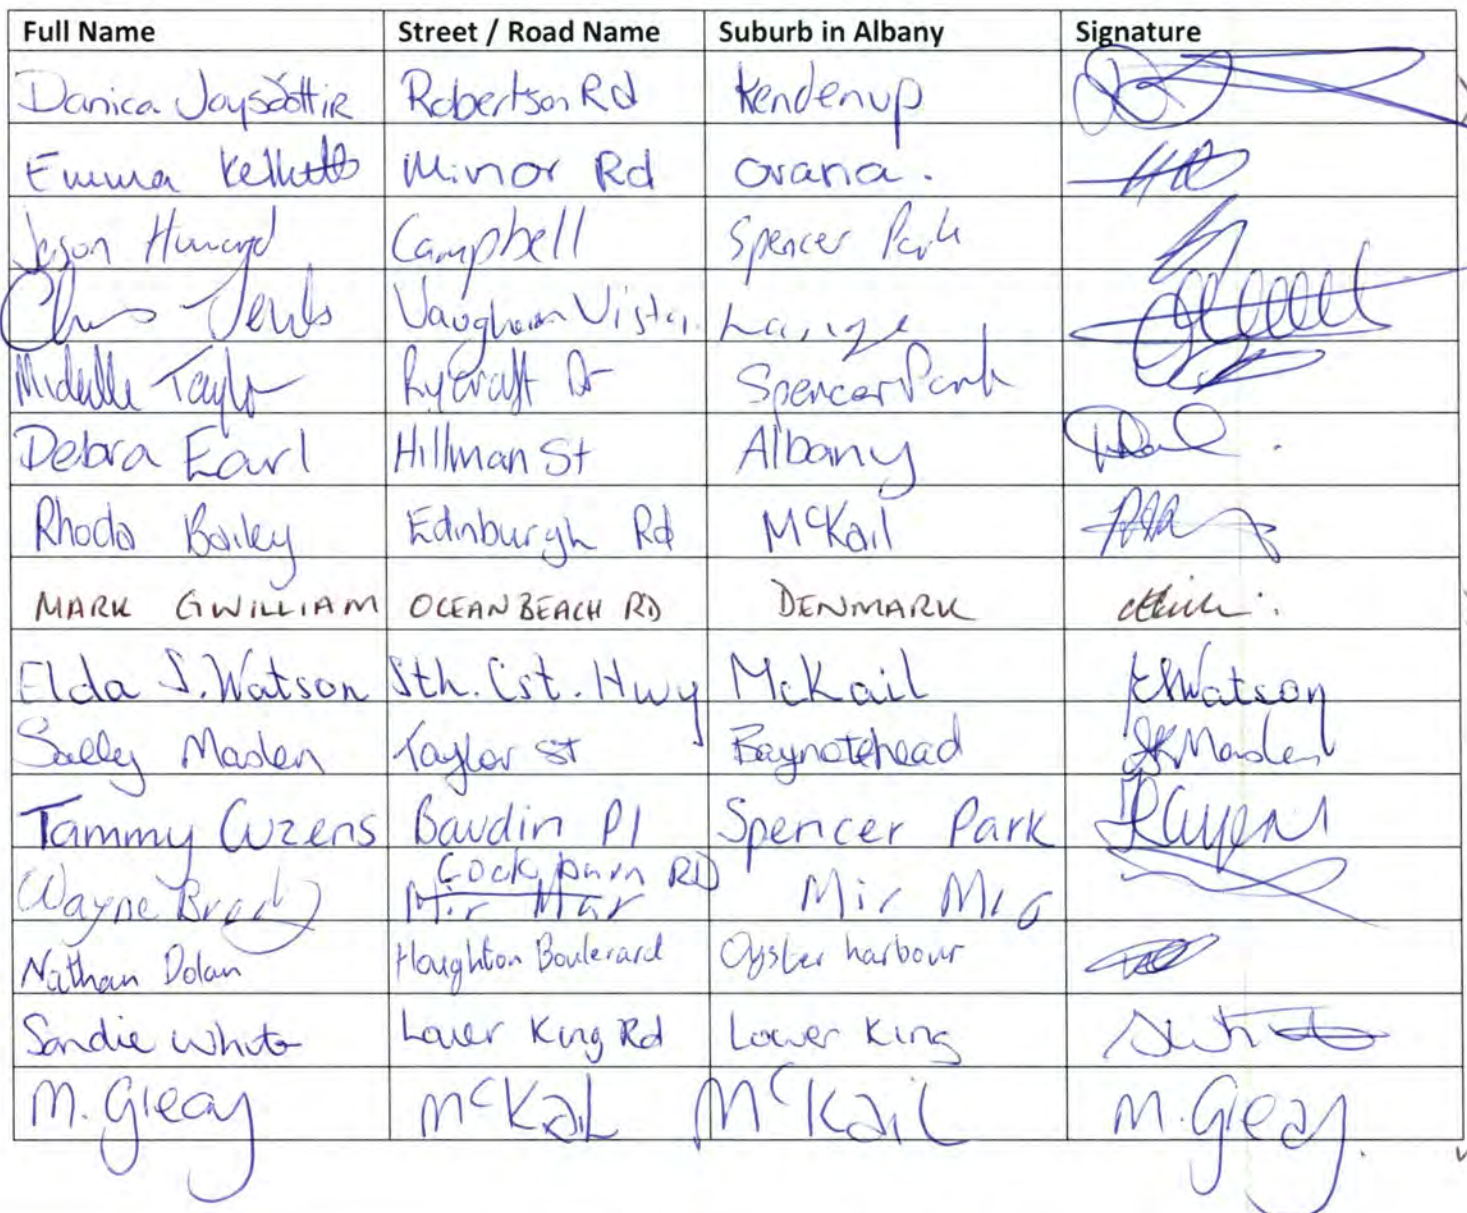 Full Name Street / Road Name Suburb in Albany Signature
Danica Jaysdottir Robertson Rd Kendenup
Emma Minor Rd Orana.
Jason Howard Campbell Spencer Park
Chris Vaughan Vista Lange
Michelle Taylor Rycraft Dr Spencer Park
Debra Earl Hillman St Albany
Rhoda Bailey Edinburgh Rd McKail
MARK GWILLIAM OCEAN BEACH RD DENMARK
Elda S. Watson Sth. Cst. Hwy McKail Watson
Sally Maslen Taylor St Baynotehead Maslen
Tammy Cuzens Baudin Pl Spencer Park
Cockburn RD
Wayne Brady Mir Mar Mir Mar
Nathan Dolan Houghton Boulevard Oyster harbour
Sandie White Lower King Rd Lower King
M. Gleay McKaL McKaiL M. Gleay.